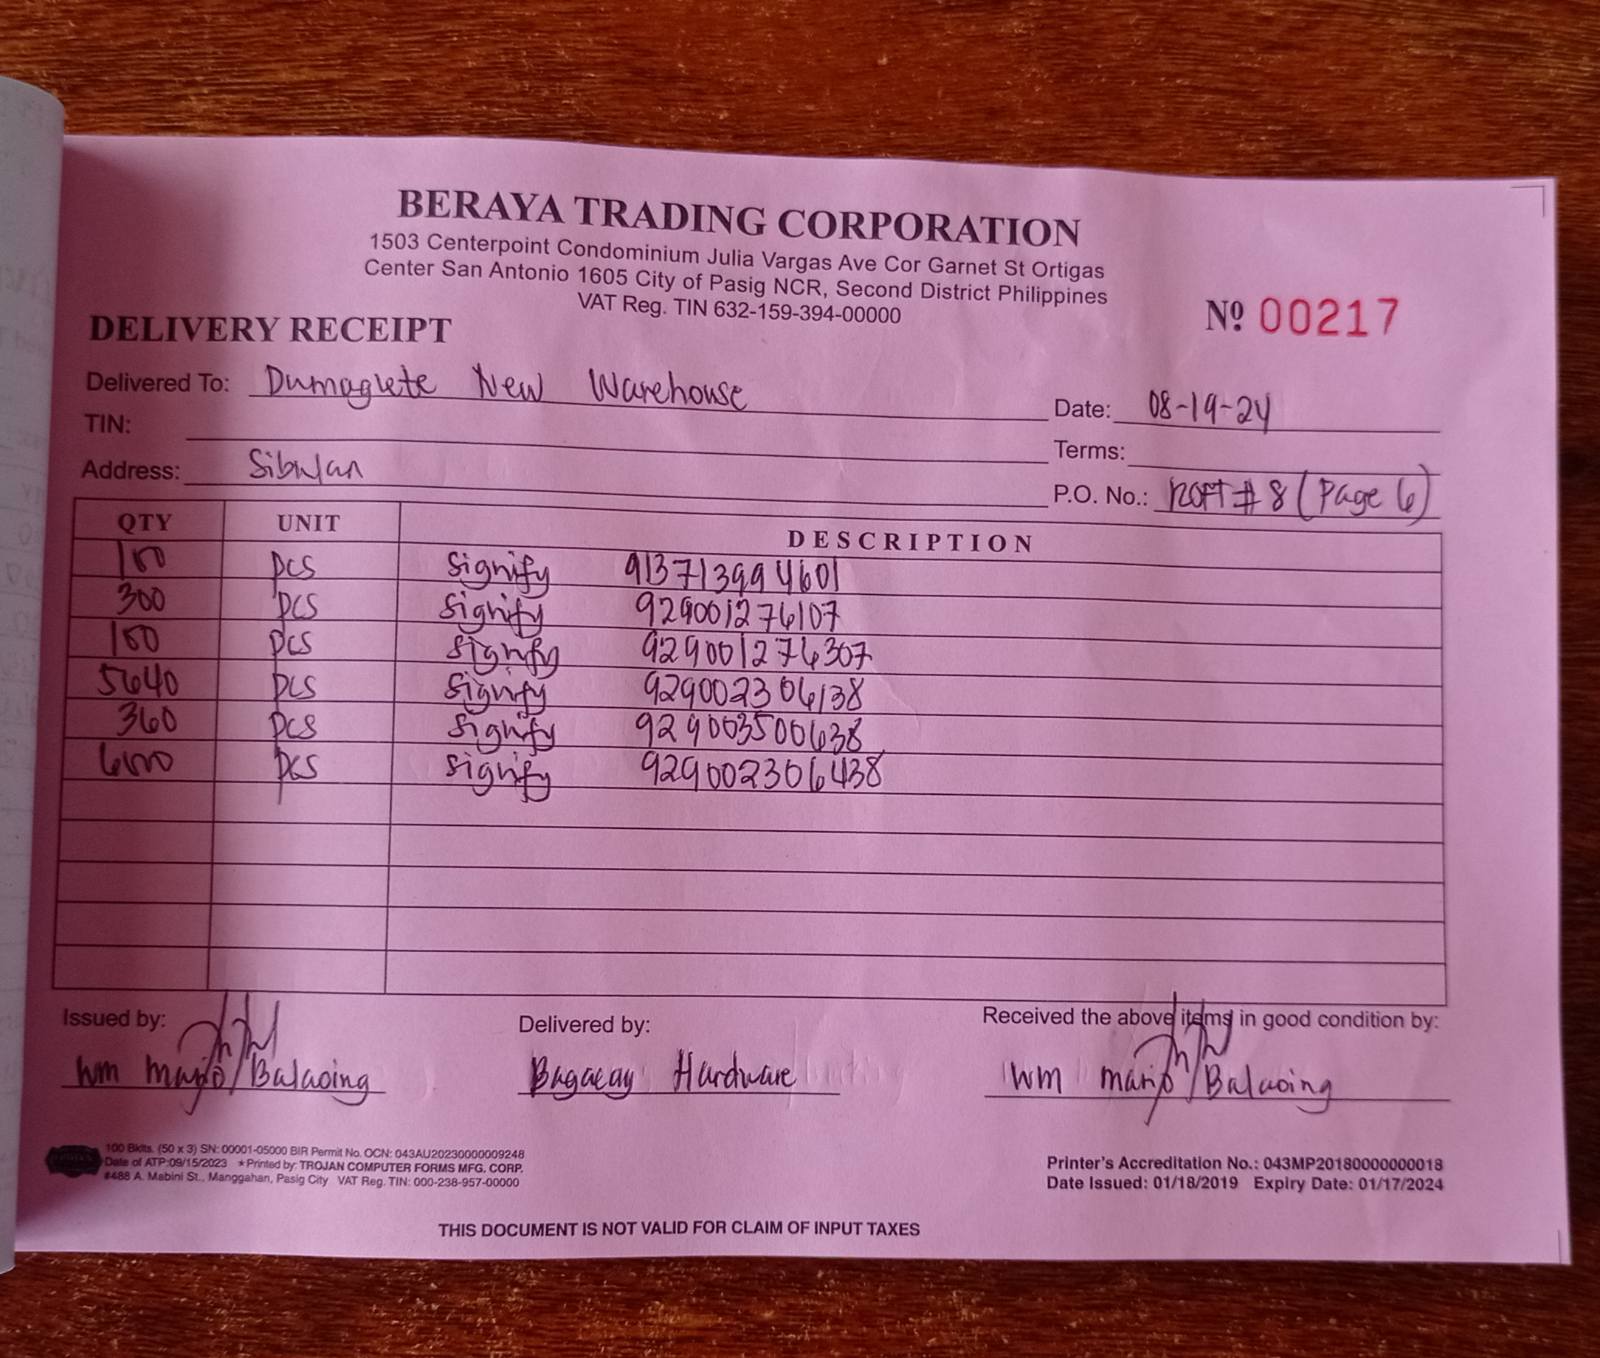 BERAYA TRADING CORPORATION
1503 Centerpoint Condominium Julia Vargas Ave Cor Garnet St Ortigas
Center San Antonio 1605 City of Pasig NCR, Second District Philippines
VAT Reg. TIN 632-159-394-00000
Nº 00217
DELIVERY RECEIPT
Delivered To: Dumaguete New Warehouse
Date: 08-19-24
TIN:
Terms:
Address: Sibulan
P.O. No.: ROFT # 8 (Page 6)
QTY UNIT DESCRIPTION
100 pcs Signify 913713994601
300 pcs Signify 929001276107
100 pcs Signify 929001276307
5640 pcs Signify 929002306138
360 pcs Signify 929003500638
6000 pcs Signify 929002306438
Issued by: Delivered by: Received the above items in good condition by:
WM Marjo Balaoing Bagacay Hardware WM Marjo Balaoing
100 Bklts. (50 x 3) SN: 00001-05000 BIR Permit No. OCN: 043AU20230000009248
Date of ATP:09/15/2023 *Printed by: TROJAN COMPUTER FORMS MFG. CORP.
#488 A. Mabini St., Manggahan, Pasig City VAT Reg. TIN: 000-238-957-00000
Printer's Accreditation No.: 043MP20180000000018
Date Issued: 01/18/2019 Expiry Date: 01/17/2024
THIS DOCUMENT IS NOT VALID FOR CLAIM OF INPUT TAXES